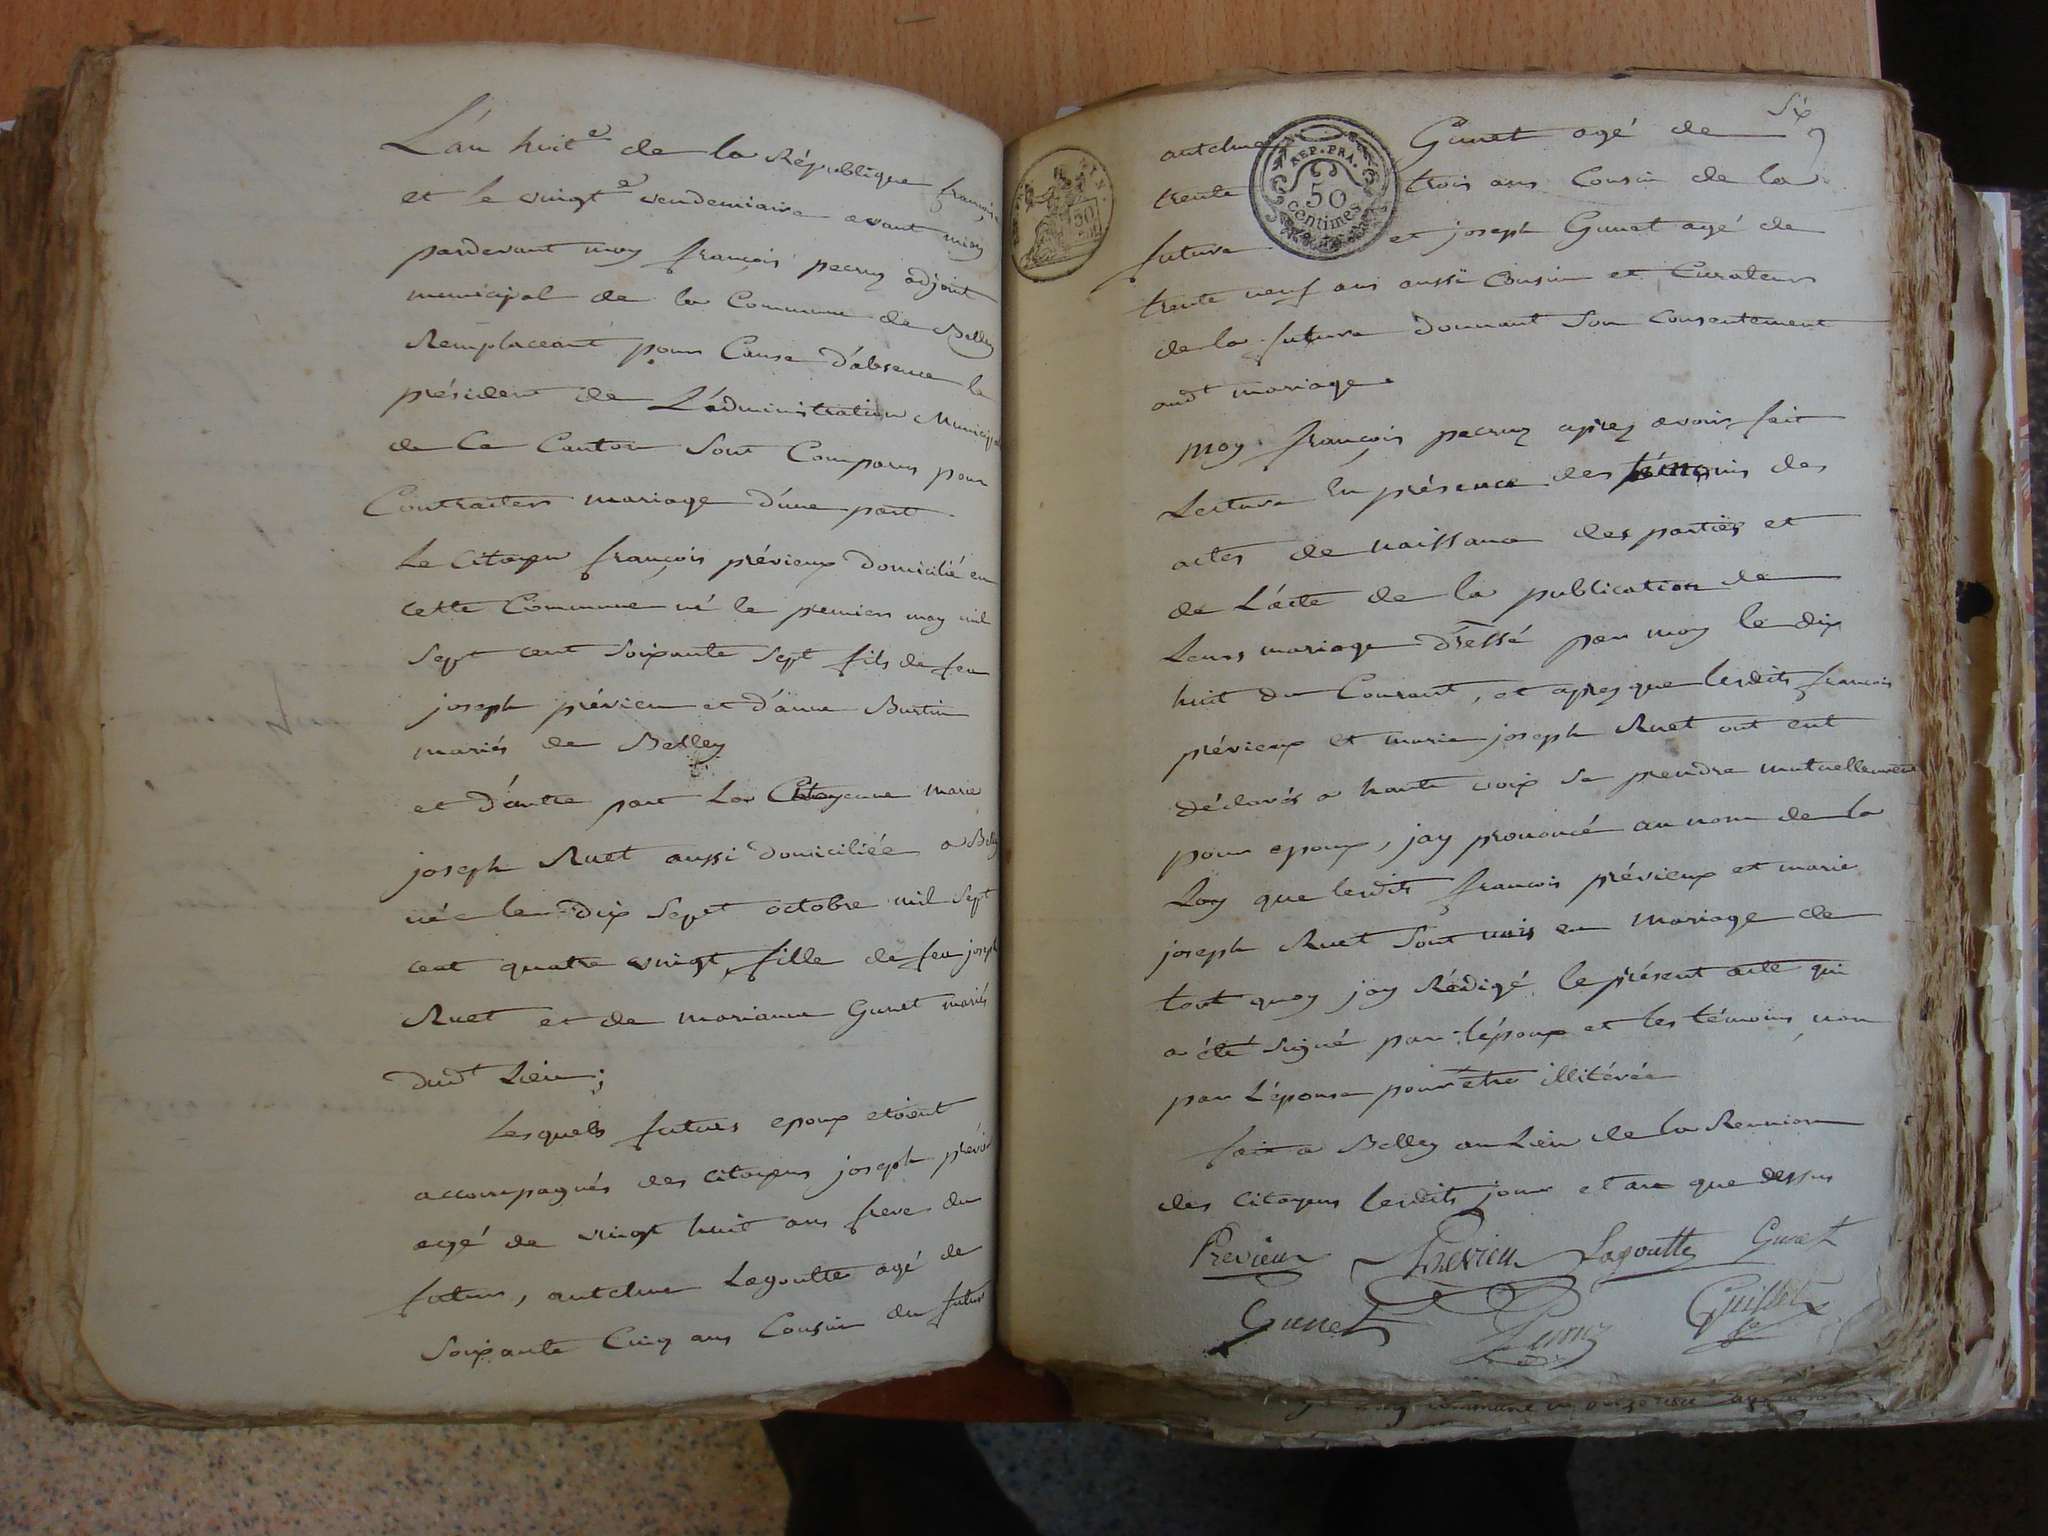 L'an huit.e de la République françoise
et le vingt.e vendemiaire avant midy
pardevant moy françois pecruy adjoint
municipal de la Commune de Belley
Remplaceant pour Cause d'absence le
président de L'administration Municipal
de Ce Canton Sont Comparus pour
Contracter mariage d'une part
Le Citoyen françois prévieux domicilié en
cette Commune né le premier may mil
Sept cent soixante sept fils de feu
joseph prévieu et d'anne Burtin
mariés de Belley
et d'autre part La Citoyenne marie
joseph Ruet aussi domiciliée a Belley
née le dix Sept octobre mil Sept
cent quatre vingt, fille de feu joseph
Ruet et de marianne Gunet mariés
dud.t Lieu;
Lesquels futurs epoux etoient
accompagnés des citoyens joseph prévieu
agé de vingt huit ans frere du
futur, antelme Lagoutte agé de
Soixante Cinq ans Cousin du futur
Six
antelme Gunet agé de
trente trois ans Cousin de la
future et joseph Gunet agé de
trente neuf ans aussi Cousin et Curateur
de la future donnant Son Consentement
aud.t mariage
REP. FRA.
50
centimes
50
moy françois pecruy aprez avoir fait
Lecture En présence des témoins des
actes de naissance des parties et
de L'acte de la publication de
Leurs mariage dressé par moy le dix
huit du Courant, et aprez que lesdits françois
prévieux et marie joseph Ruet ont eut
déclarés a haute voix se prendre mutuellement
pour epoux, jay prononcé au nom de la
Loy que lesdits françois prévieux et marie
joseph Ruet Sont unis en mariage de
tout quoy jay Rédigé le présent acte qui
a été signé par l'époux et les témoins, non
par L'épouse pour être illitérée
fait a Belley au Lieu de la Reunion
des Citoyens lesdits jour et an que dessus
Previeux Previeu Lagoutte Gunet
Gunet Pecruy